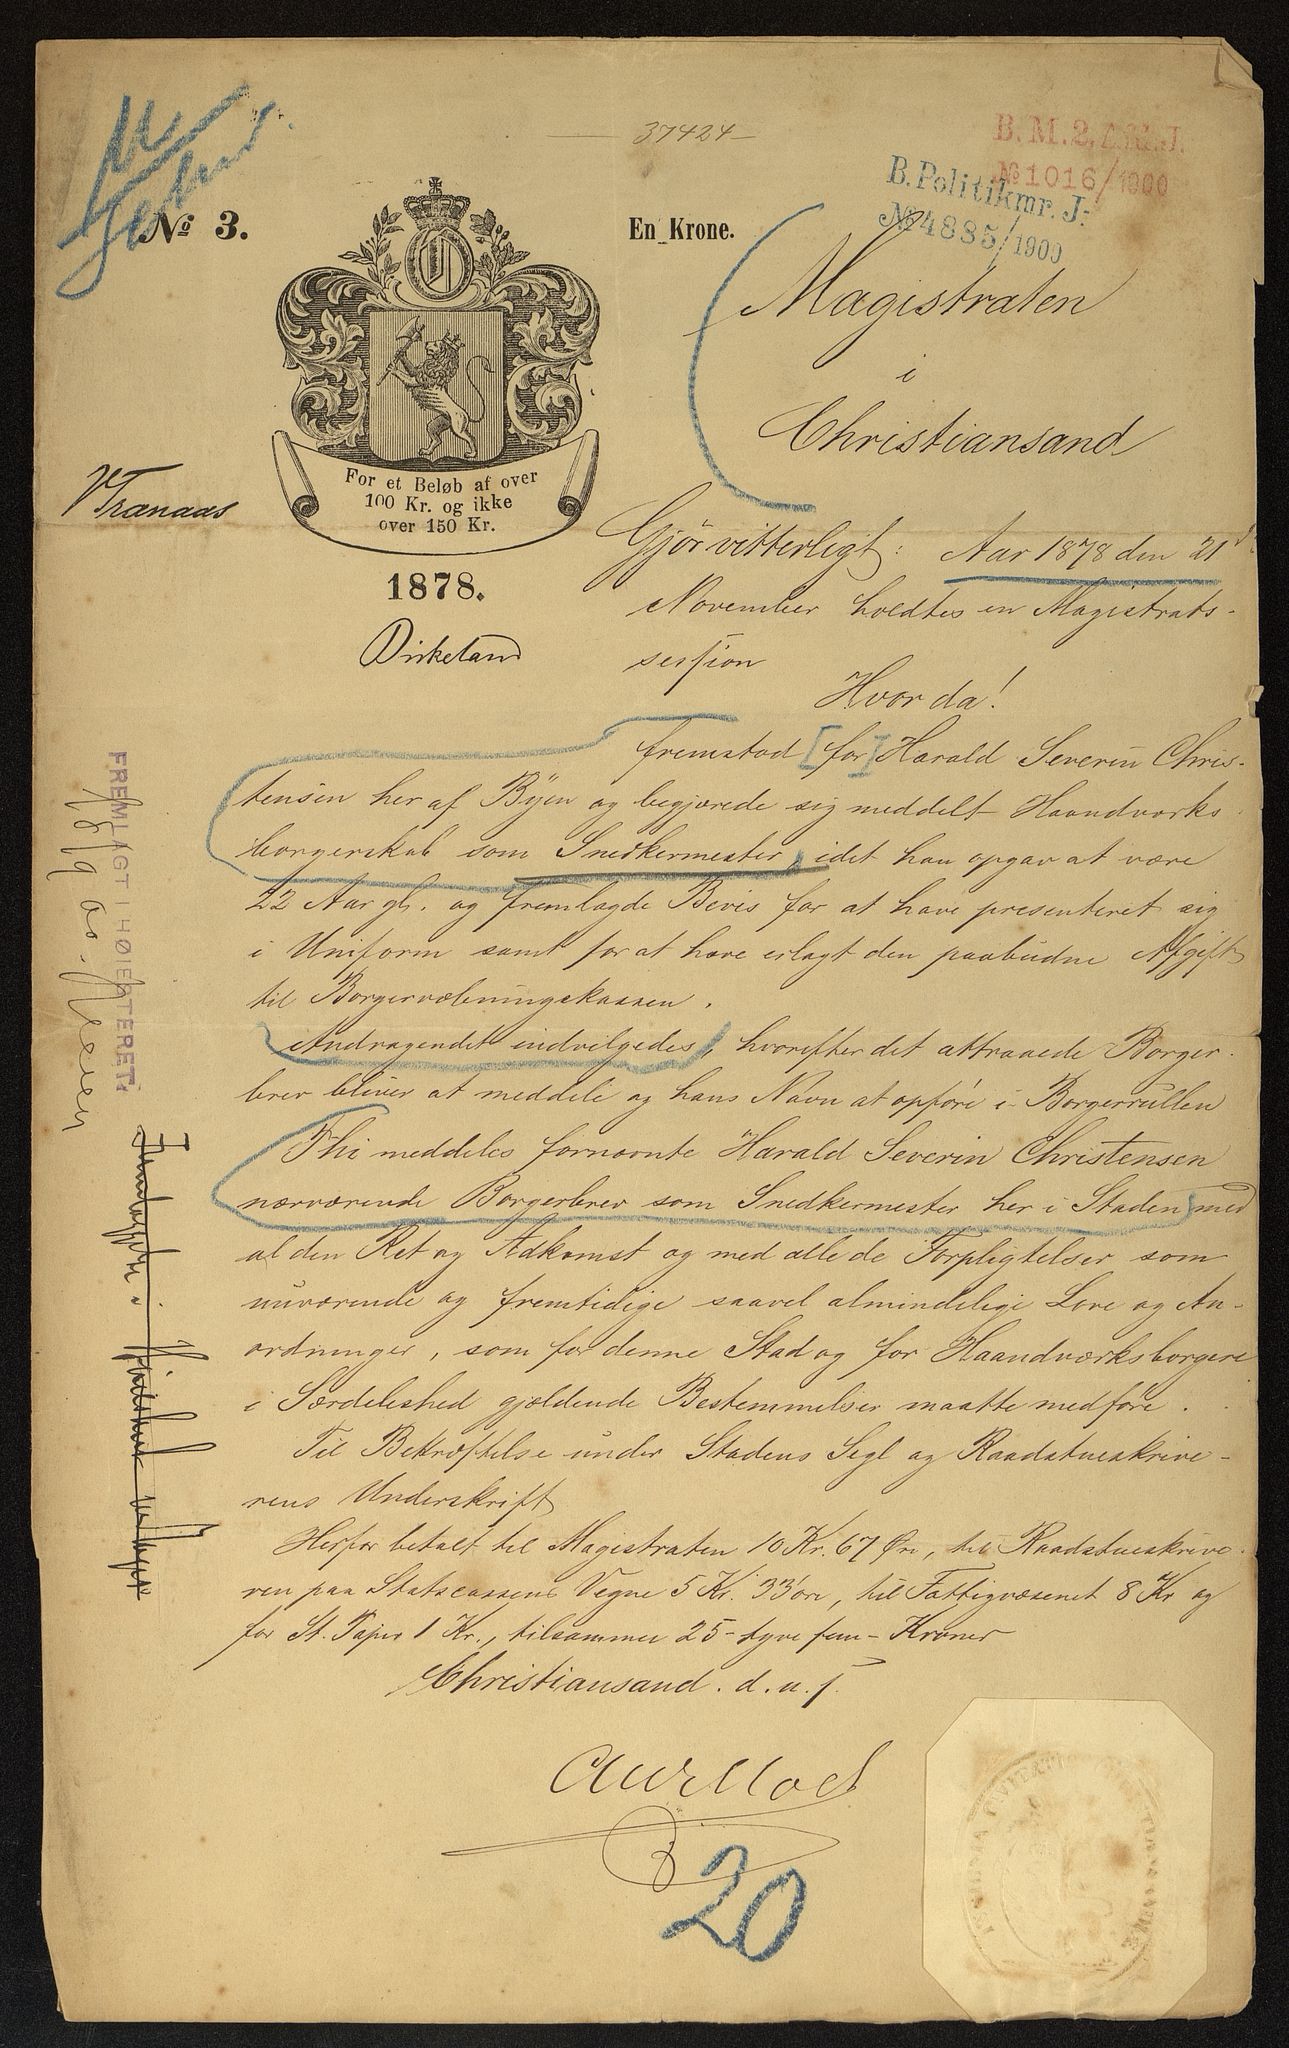 37424
B. M. 2. A. K. J.
№ 1016/1900
B. Politikmr. J.
№ 4885/1900
№ 3.
En Krone.
For et Beløb af over
100 Kr. og ikke
over 150 Kr.
1878.
VTranaas
Birkeland
Magistraten
i
Christiansand
Gjör vitterligt: Aar 1878 den 21d
November holdtes en Magistrats-
session
Hvor da!
fremstod [for] Harald Severin Chris-
tensen her af Byen og begjærede sig meddelt Haandværks
borgerskab som Snedkermester, idet han opgav at være
22 Aar gl. og fremlagde Bevis for at have presenteret sig
i Uniform samt for at have erlagt den paabudne Afgift
til Borgervæbningskassen.
Andragendet indvilgedes, hvorefter det attraaede Borger-
brev bliver at meddele og hans Navn at opføre i Borgerrullen
Thi meddeles fornævnte Harald Severin Christensen
nærværende Borgerbrev som Snedkermester her i Staden med
al den Ret og Adkomst og med alle de Forpligtelser som
nuværende og fremtidige saavel almindelige Love og An-
ordninger, som for denne Stad og for Haandværksborgere
i Særdeleshed gjældende Bestemmelser maatte medføre.
Til Bekræftelse under Stadens Segl og Raadstueskrive-
rens Underskrift
Herfor betalt til Magistraten 10 Kr. 67 Øre, til Raadstueskrive-
ren paa Statscassens Vegne 5 Kr. 33 øre, til Fattigvæsenet 8 Kr og
for St. Papir 1 Kr., tilsammen 25 - tyve fem - Kroner
Christiansand. d. u. s.
20
FREMLAGT I HØIESTERET: